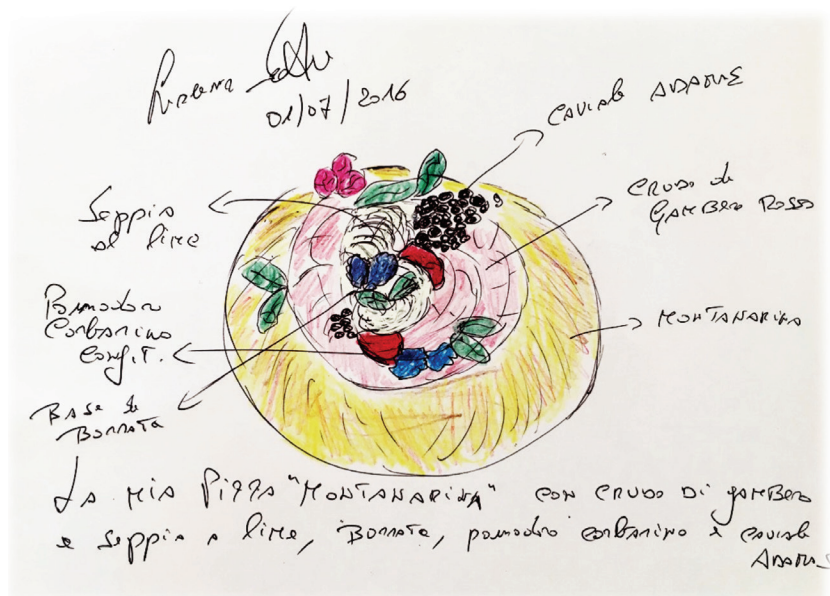 01/07/2016
CAVIALE ADAMAS
CRUDO di
GAMBERO ROSSO
Seppia
al lime
MONTANARINA
Pomodoro
Corbarino
Confit.
BASE di
BURRATA
LA MIA PIZZA "MONTANARINA" CON CRUDO DI GAMBERO
e seppia a lime, BURRATA, pomodoro corbarino e caviale
ADAMAS